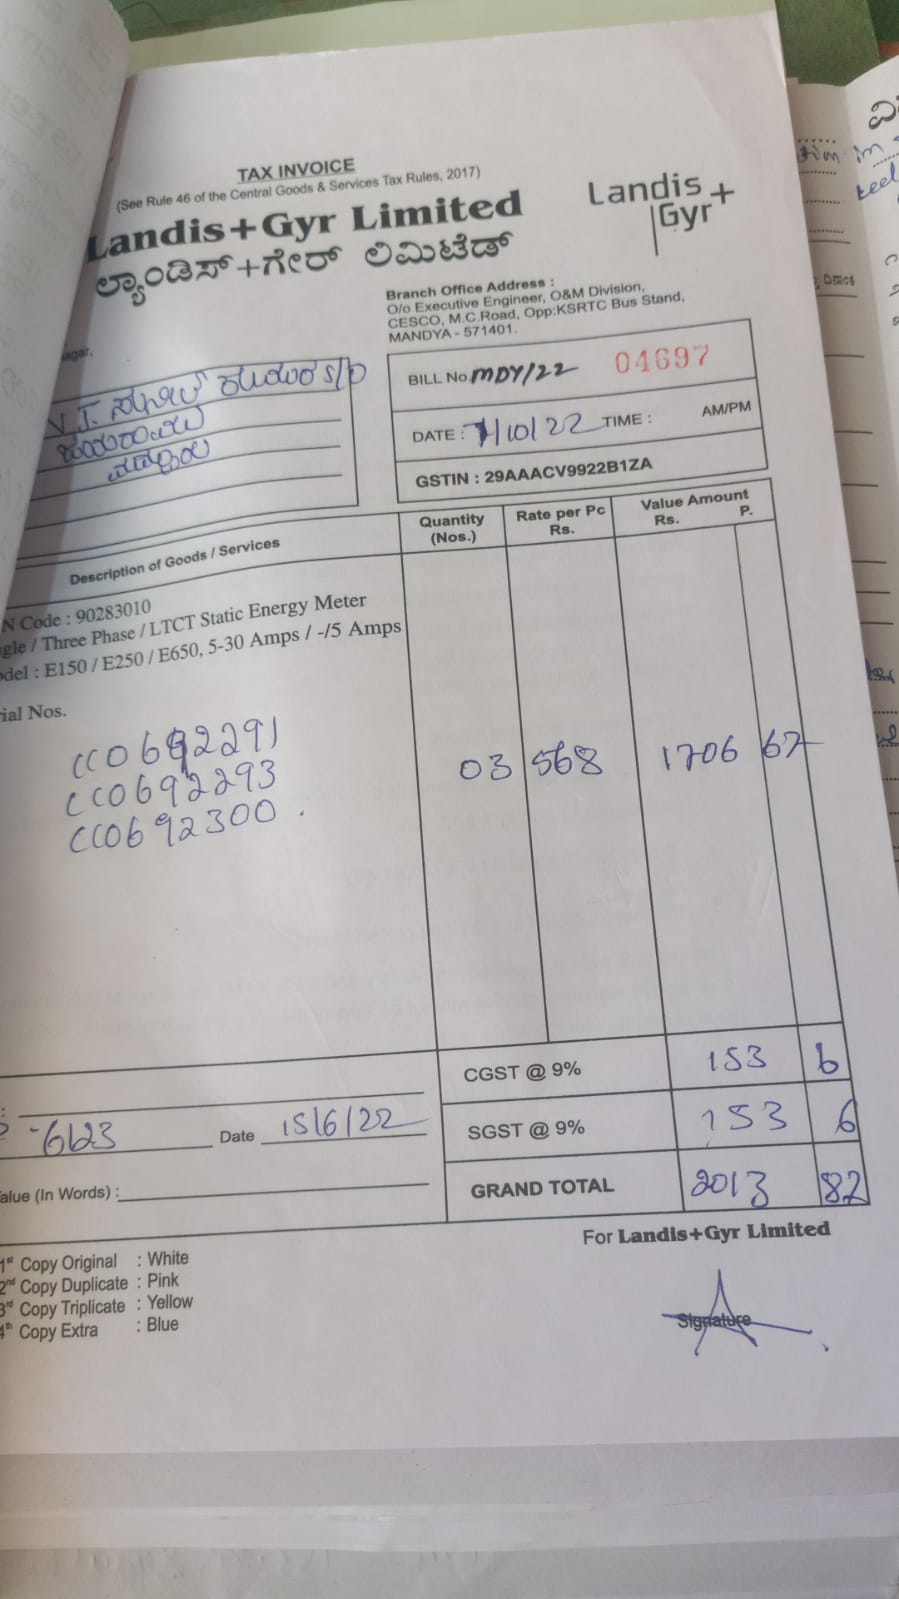 TAX INVOICE
(See Rule 46 of the Central Goods & Services Tax Rules, 2017)
Landis+Gyr Limited
ಲ್ಯಾಂಡಿಸ್+ಗೇರ್ ಲಿಮಿಟೆಡ್
Landis
Gyr+
Branch Office Address :
O/o Executive Engineer, O&M Division,
CESCO, M.C.Road, Opp:KSRTC Bus Stand,
MANDYA - 571401.
BILL No MDY/22 04697
DATE : 7/10/22 TIME : AM/PM
GSTIN : 29AAACV9922B1ZA
Description of Goods / Services
Quantity
(Nos.)
Rate per Pc
Rs.
Value Amount
Rs. P.
N Code : 90283010
gle / Three Phase / LTCT Static Energy Meter
odel : E150 / E250 / E650, 5-30 Amps / -/5 Amps
ial Nos.
CC0692291
CC0692293
CC0692300.
03 568 1706 67
CGST @ 9% 153 6
-6123 Date 15/6/22
SGST @ 9% 153 6
alue (In Words) :
GRAND TOTAL 2013 82
For Landis+Gyr Limited
Signature
1st Copy Original : White
2nd Copy Duplicate : Pink
3rd Copy Triplicate : Yellow
4th Copy Extra : Blue